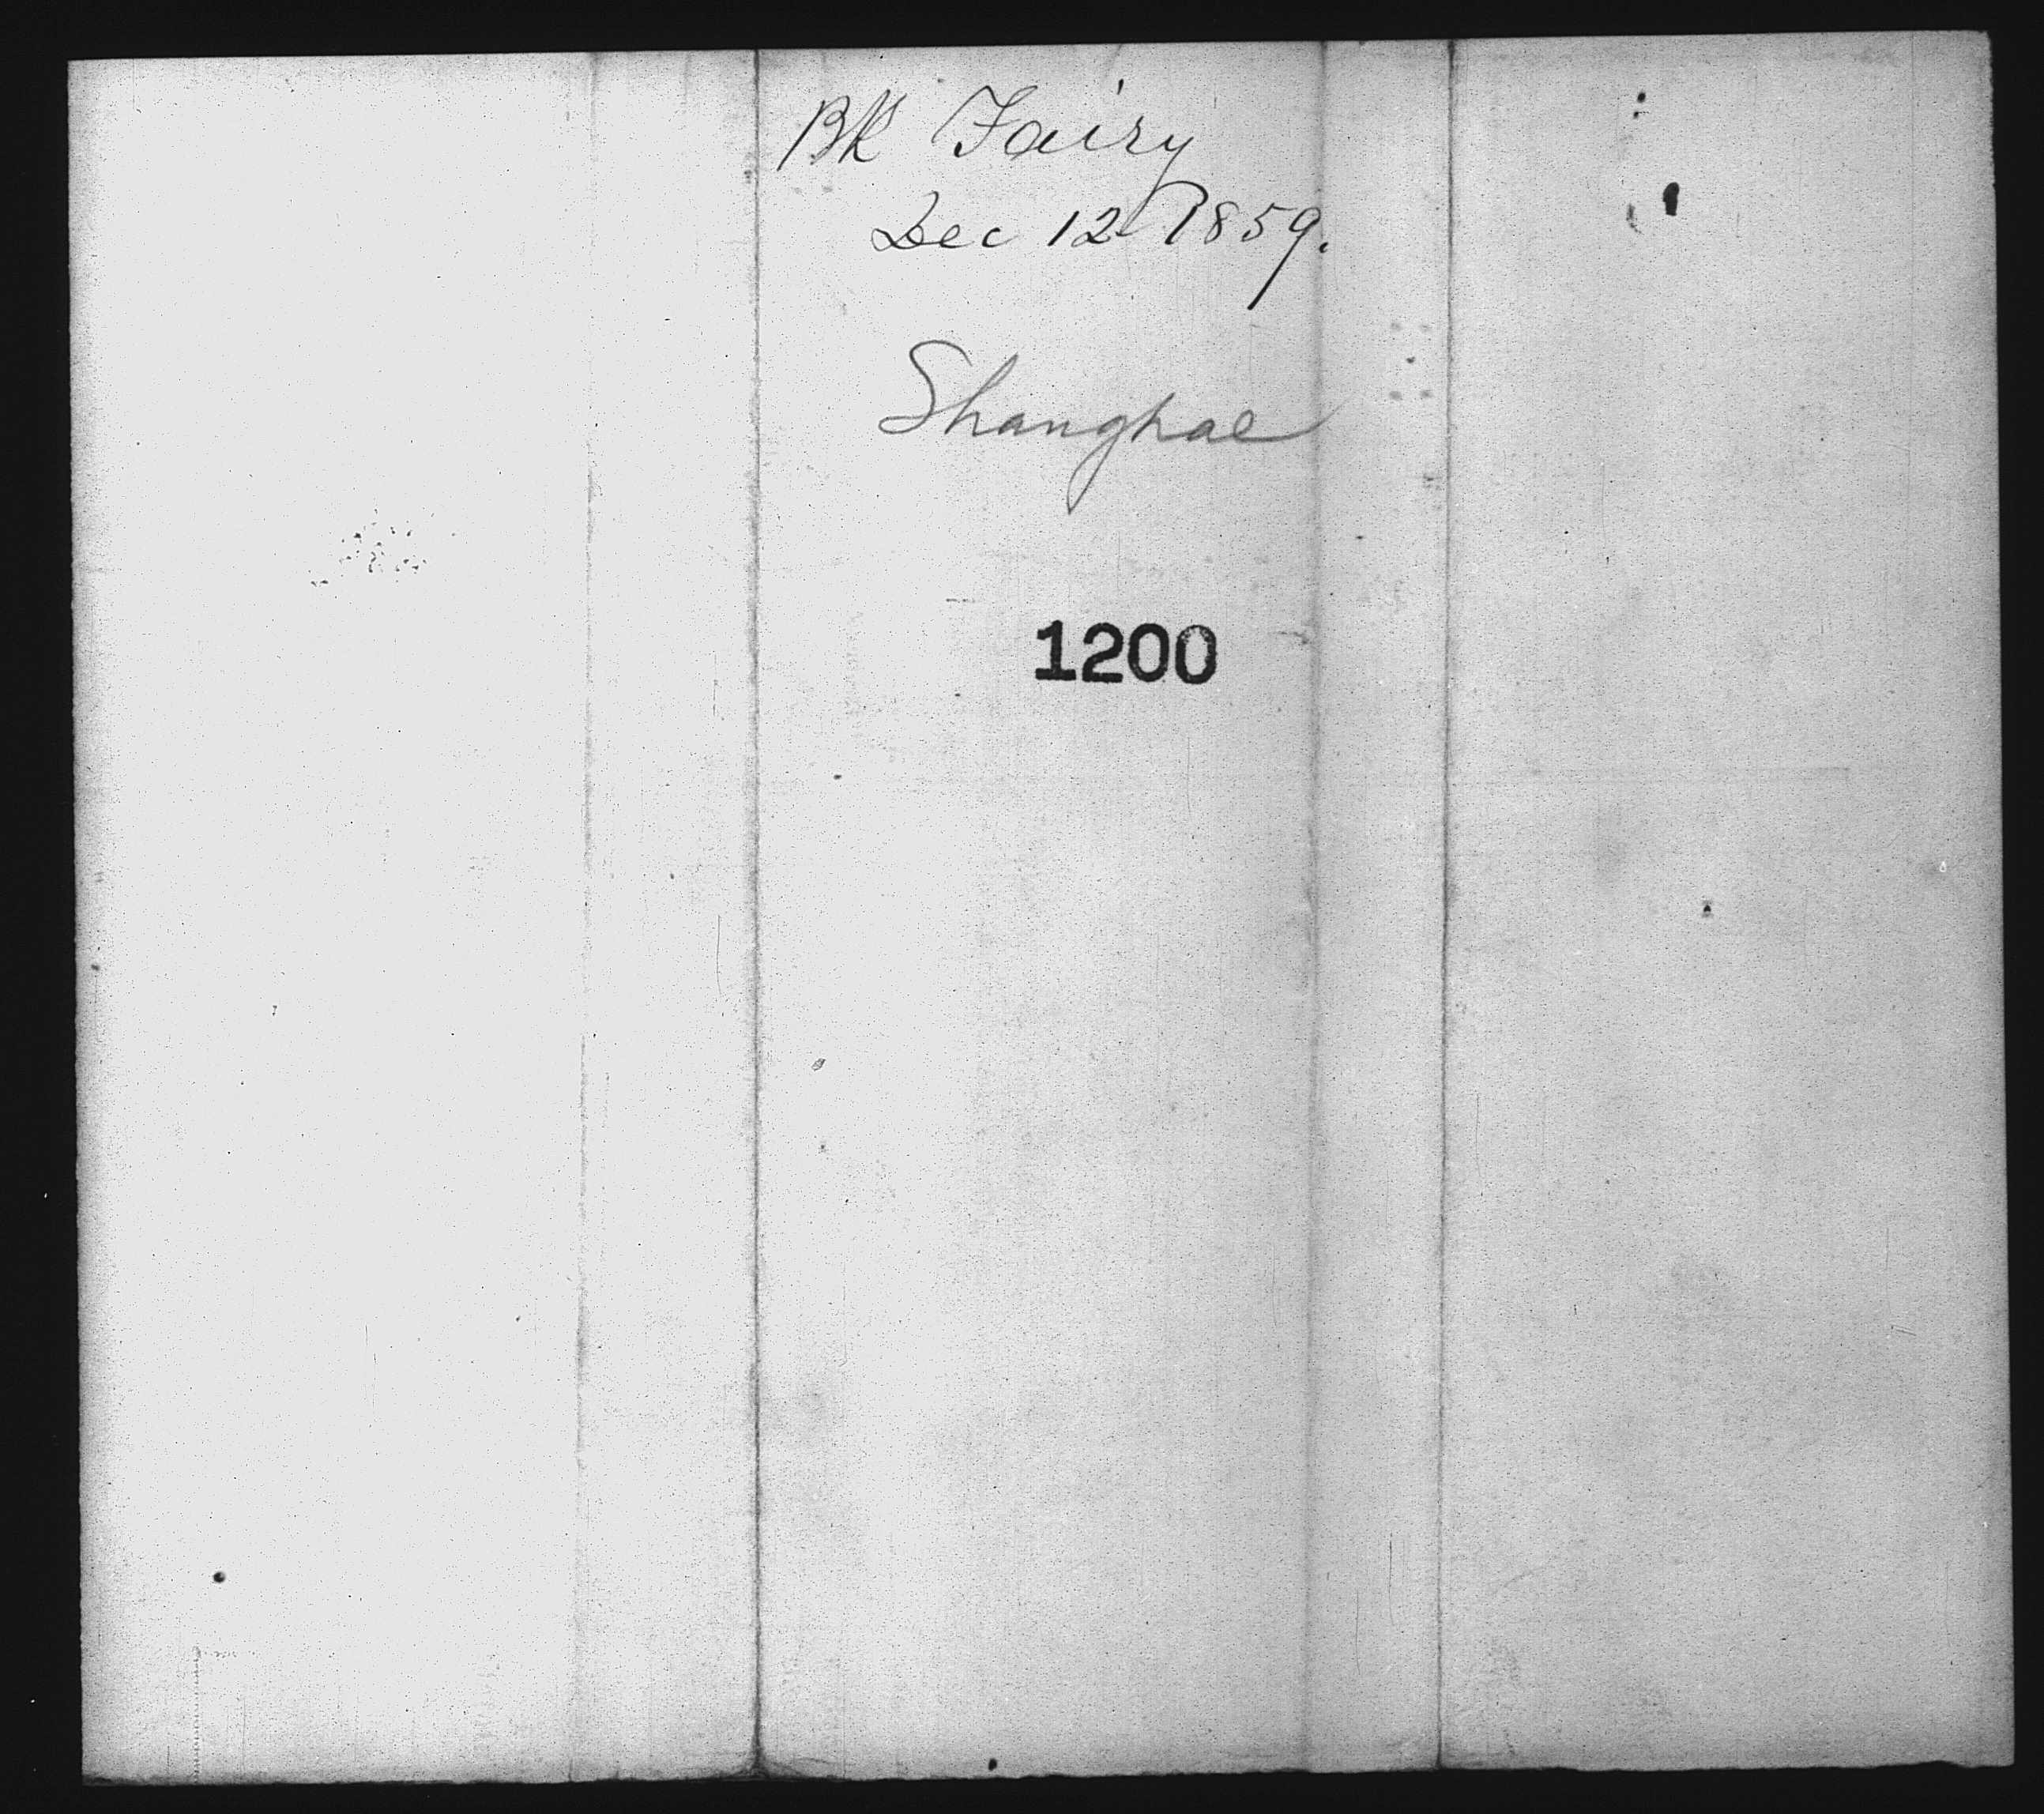 Bk Fairy
Dec 12 1859.
Shanghae
1200